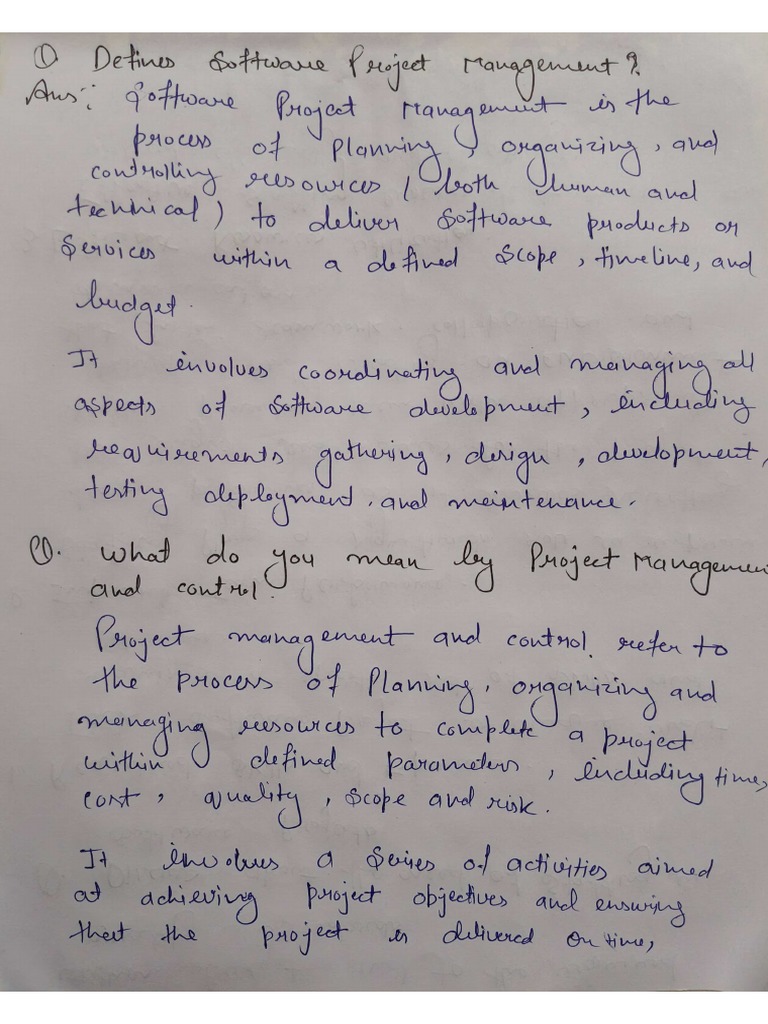 ① Defines Software Project Management?
Ans: Software Project Management is the
process of planning, organizing, and
controlling resources (both human and
technical) to deliver software products or
services within a defined scope, timeline, and
budget.
It involves coordinating and managing all
aspects of software development, including
requirements gathering, design, development,
testing deployment, and maintenance.
Q. What do you mean by Project Managemen
and control.
Project management and control refer to
the process of Planning, organizing and
managing resources to complete a project
within defined parameters, including time,
cost, quality, scope and risk.
It involves a series of activities aimed
at achieving project objectives and ensuring
that the project is delivered on time,